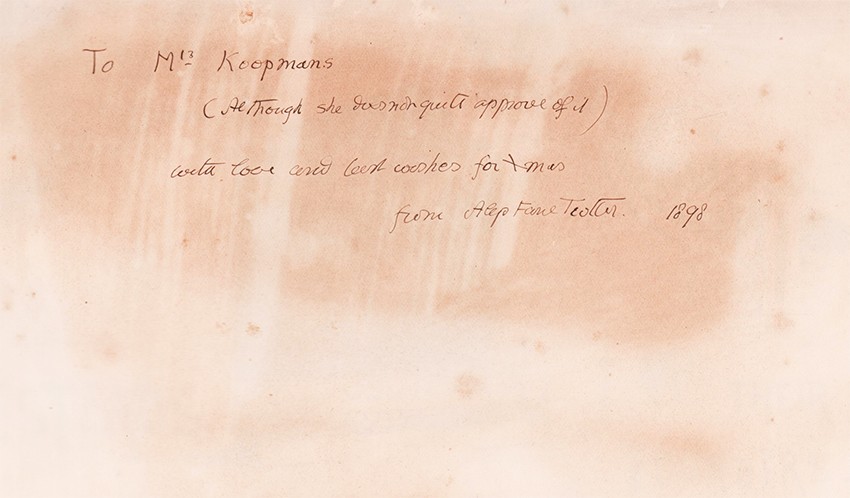 To Mrs Koopmans
(Although she does not quite approve of it)
with love and best wishes for Xmas
from Alys Fane Trotter. 1898